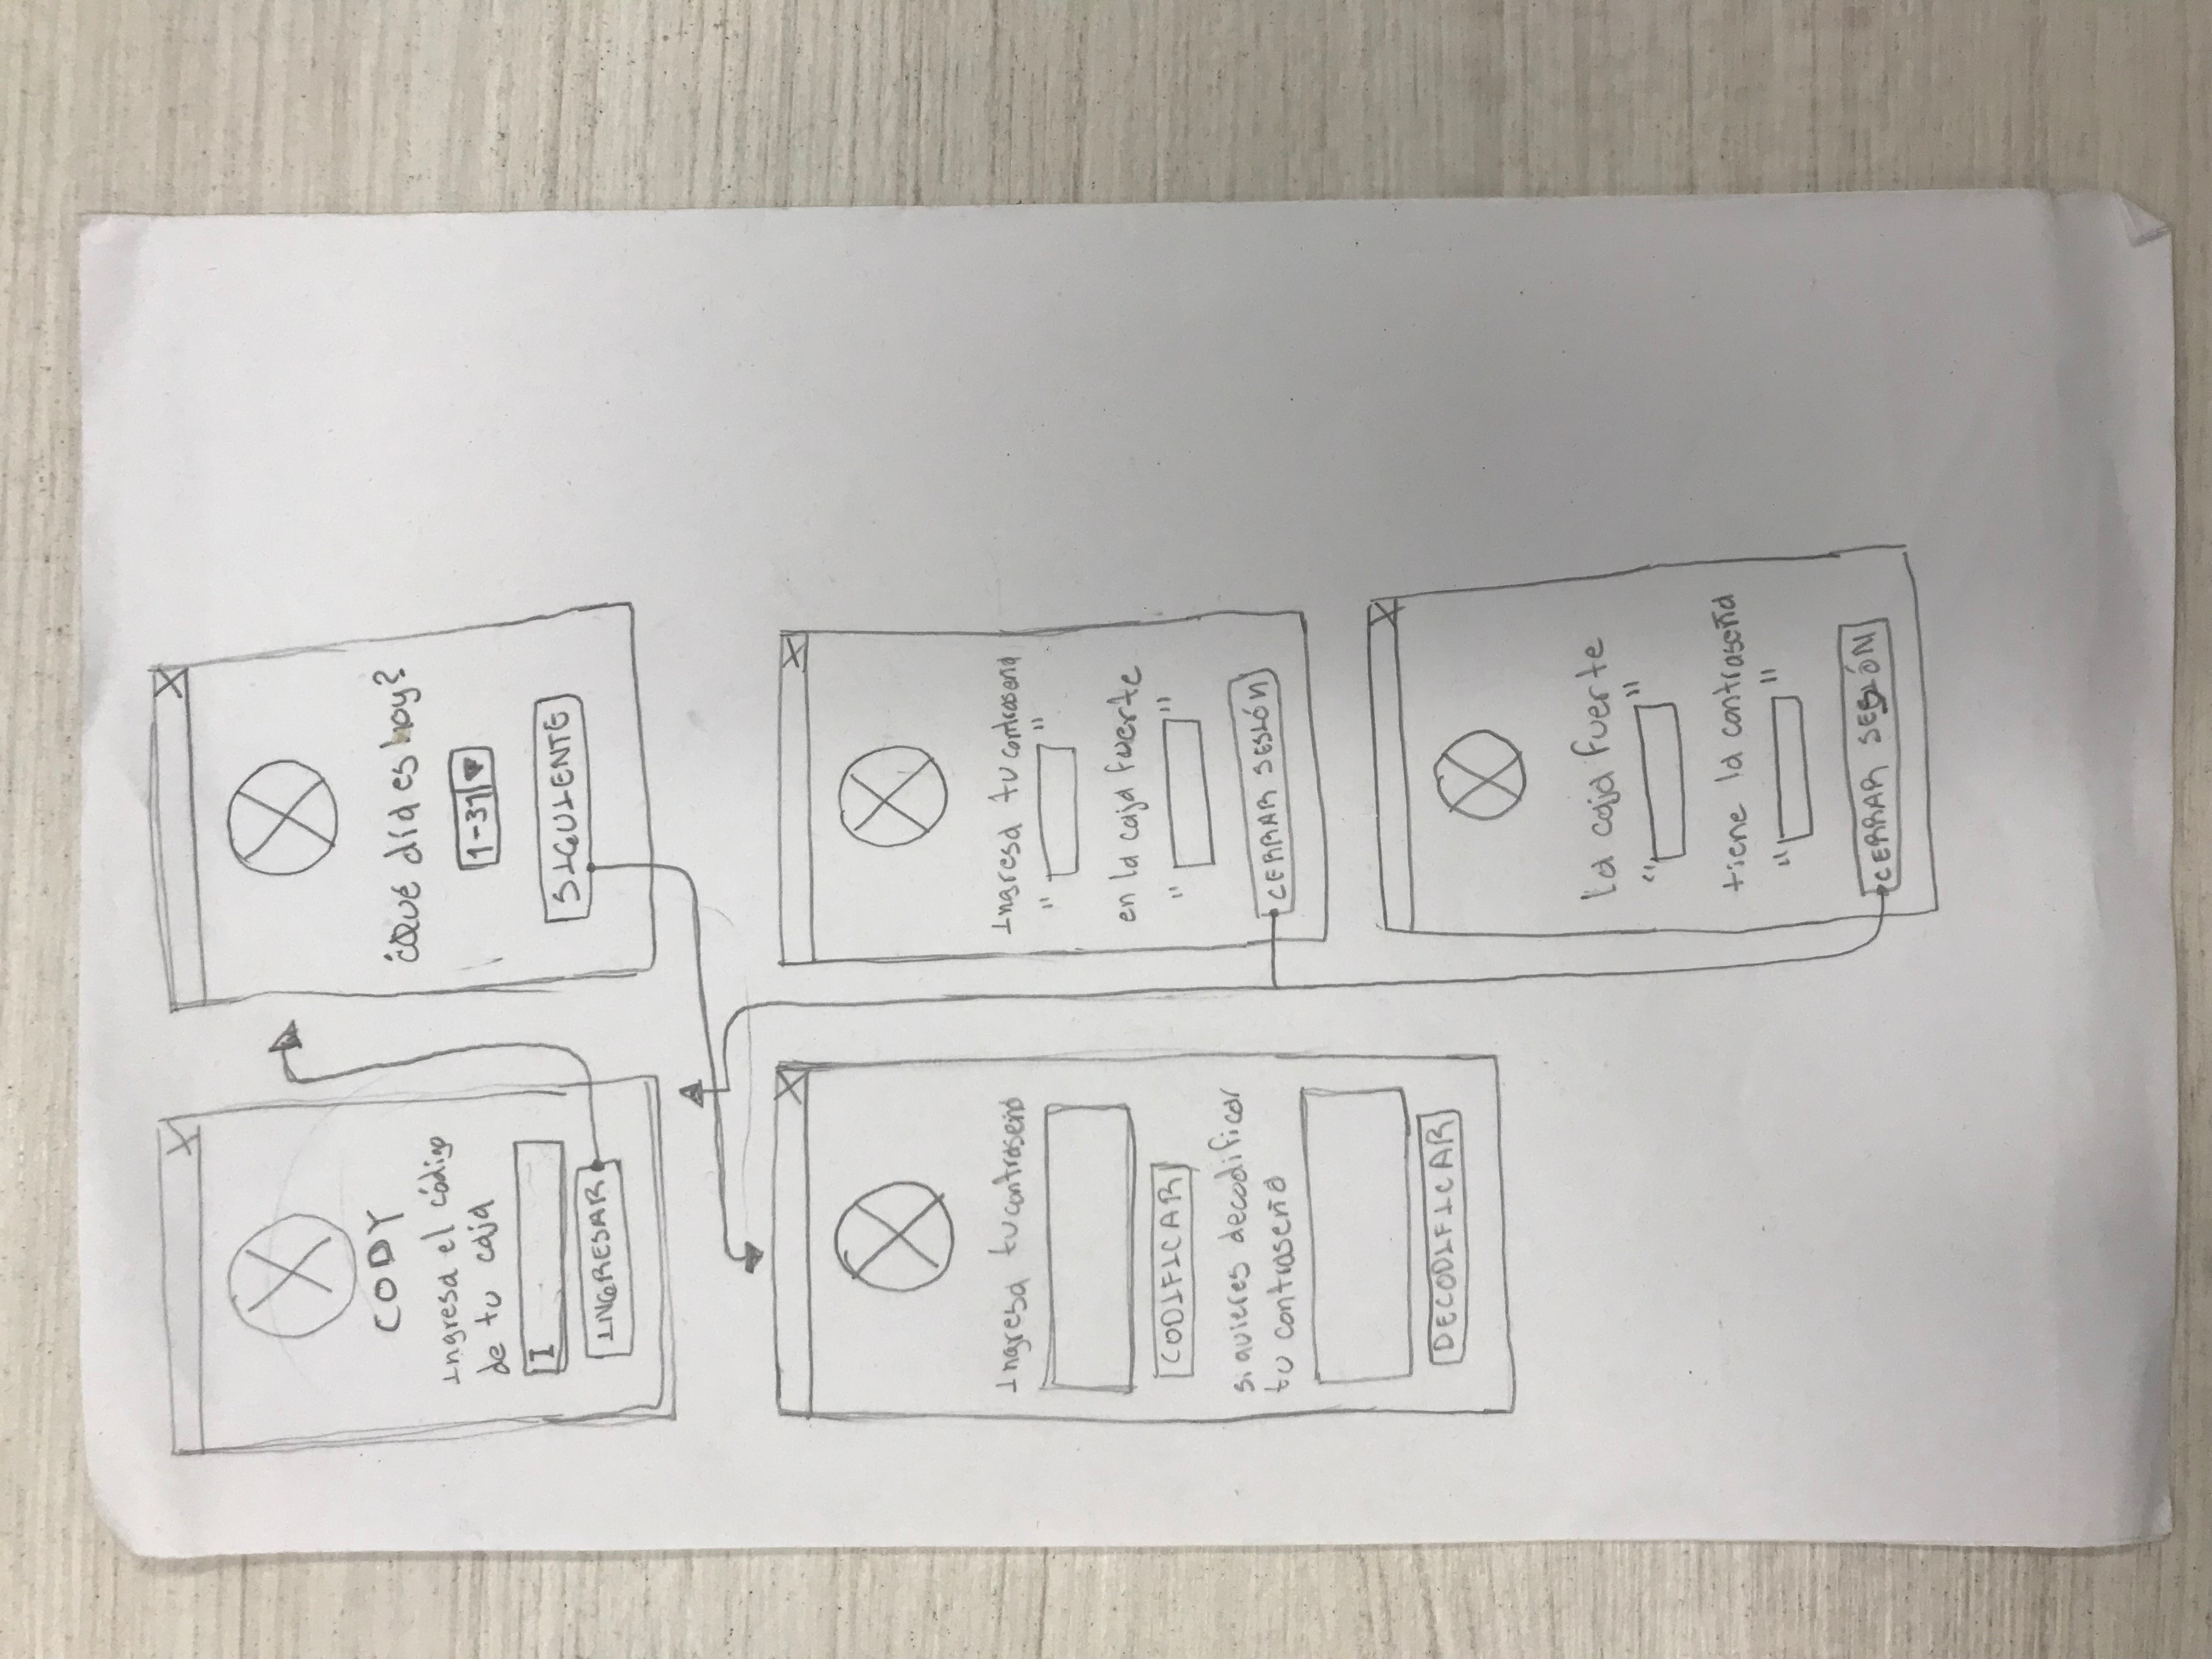 CODY
Ingresa el código
de tu caja
I
INGRESAR
¿Qué día es hoy?
1-31
SIGUIENTE
Ingresa tu contraseña
CODIFICAR
si quieres decodificar
tu contraseña
DECODIFICAR
Ingresa tu contraseña
" "
en la caja fuerte
" "
CERRAR SESIÓN
la caja fuerte
" "
tiene la contraseña
" "
CERRAR SESIÓN